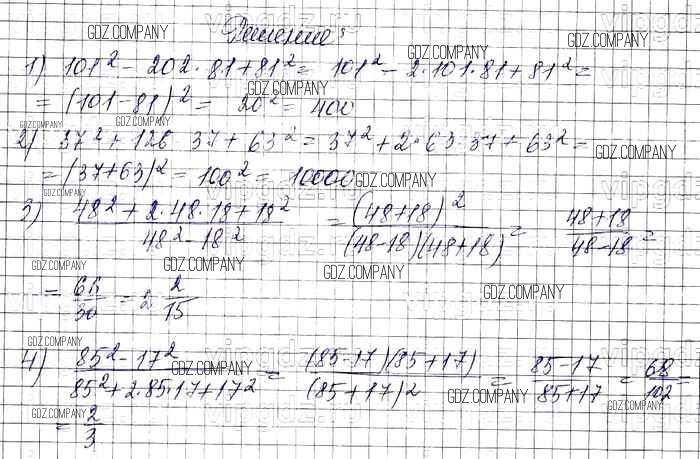 vipgdz.ru
Решение:
GDZ.COMPANY GDZ.COMPANY GDZ.COMPANY
1) 101² - 202·81 + 81² = 101² - 2·101·81 + 81² =
GDZ.COMPANY
= (101-81)² = 20² = 400
GDZ.COMPANY GDZ.COMPANY
2) 37² + 126·37 + 63² = 37² + 2·63·37 + 63² =
GDZ.COMPANY
= (37+63)² = 100² = 10000
GDZ.COMPANY GDZ.COMPANY
3) 48² + 2·48·18 + 18² / 48² - 18² = (48+18)² / (48-18)(48+18) = 48+18 / 48-18 =
GDZ.COMPANY GDZ.COMPANY GDZ.COMPANY
= 66/30 = 2 2/15
GDZ.COMPANY
GDZ.COMPANY
4) 85² - 17² / 85² + 2·85·17 + 17² = (85-17)(85+17) / (85+17)2 = 85-17 / 85+17 = 68/102
GDZ.COMPANY GDZ.COMPANY
GDZ.COMPANY GDZ.COMPANY GDZ.COMPANY
= 2/3